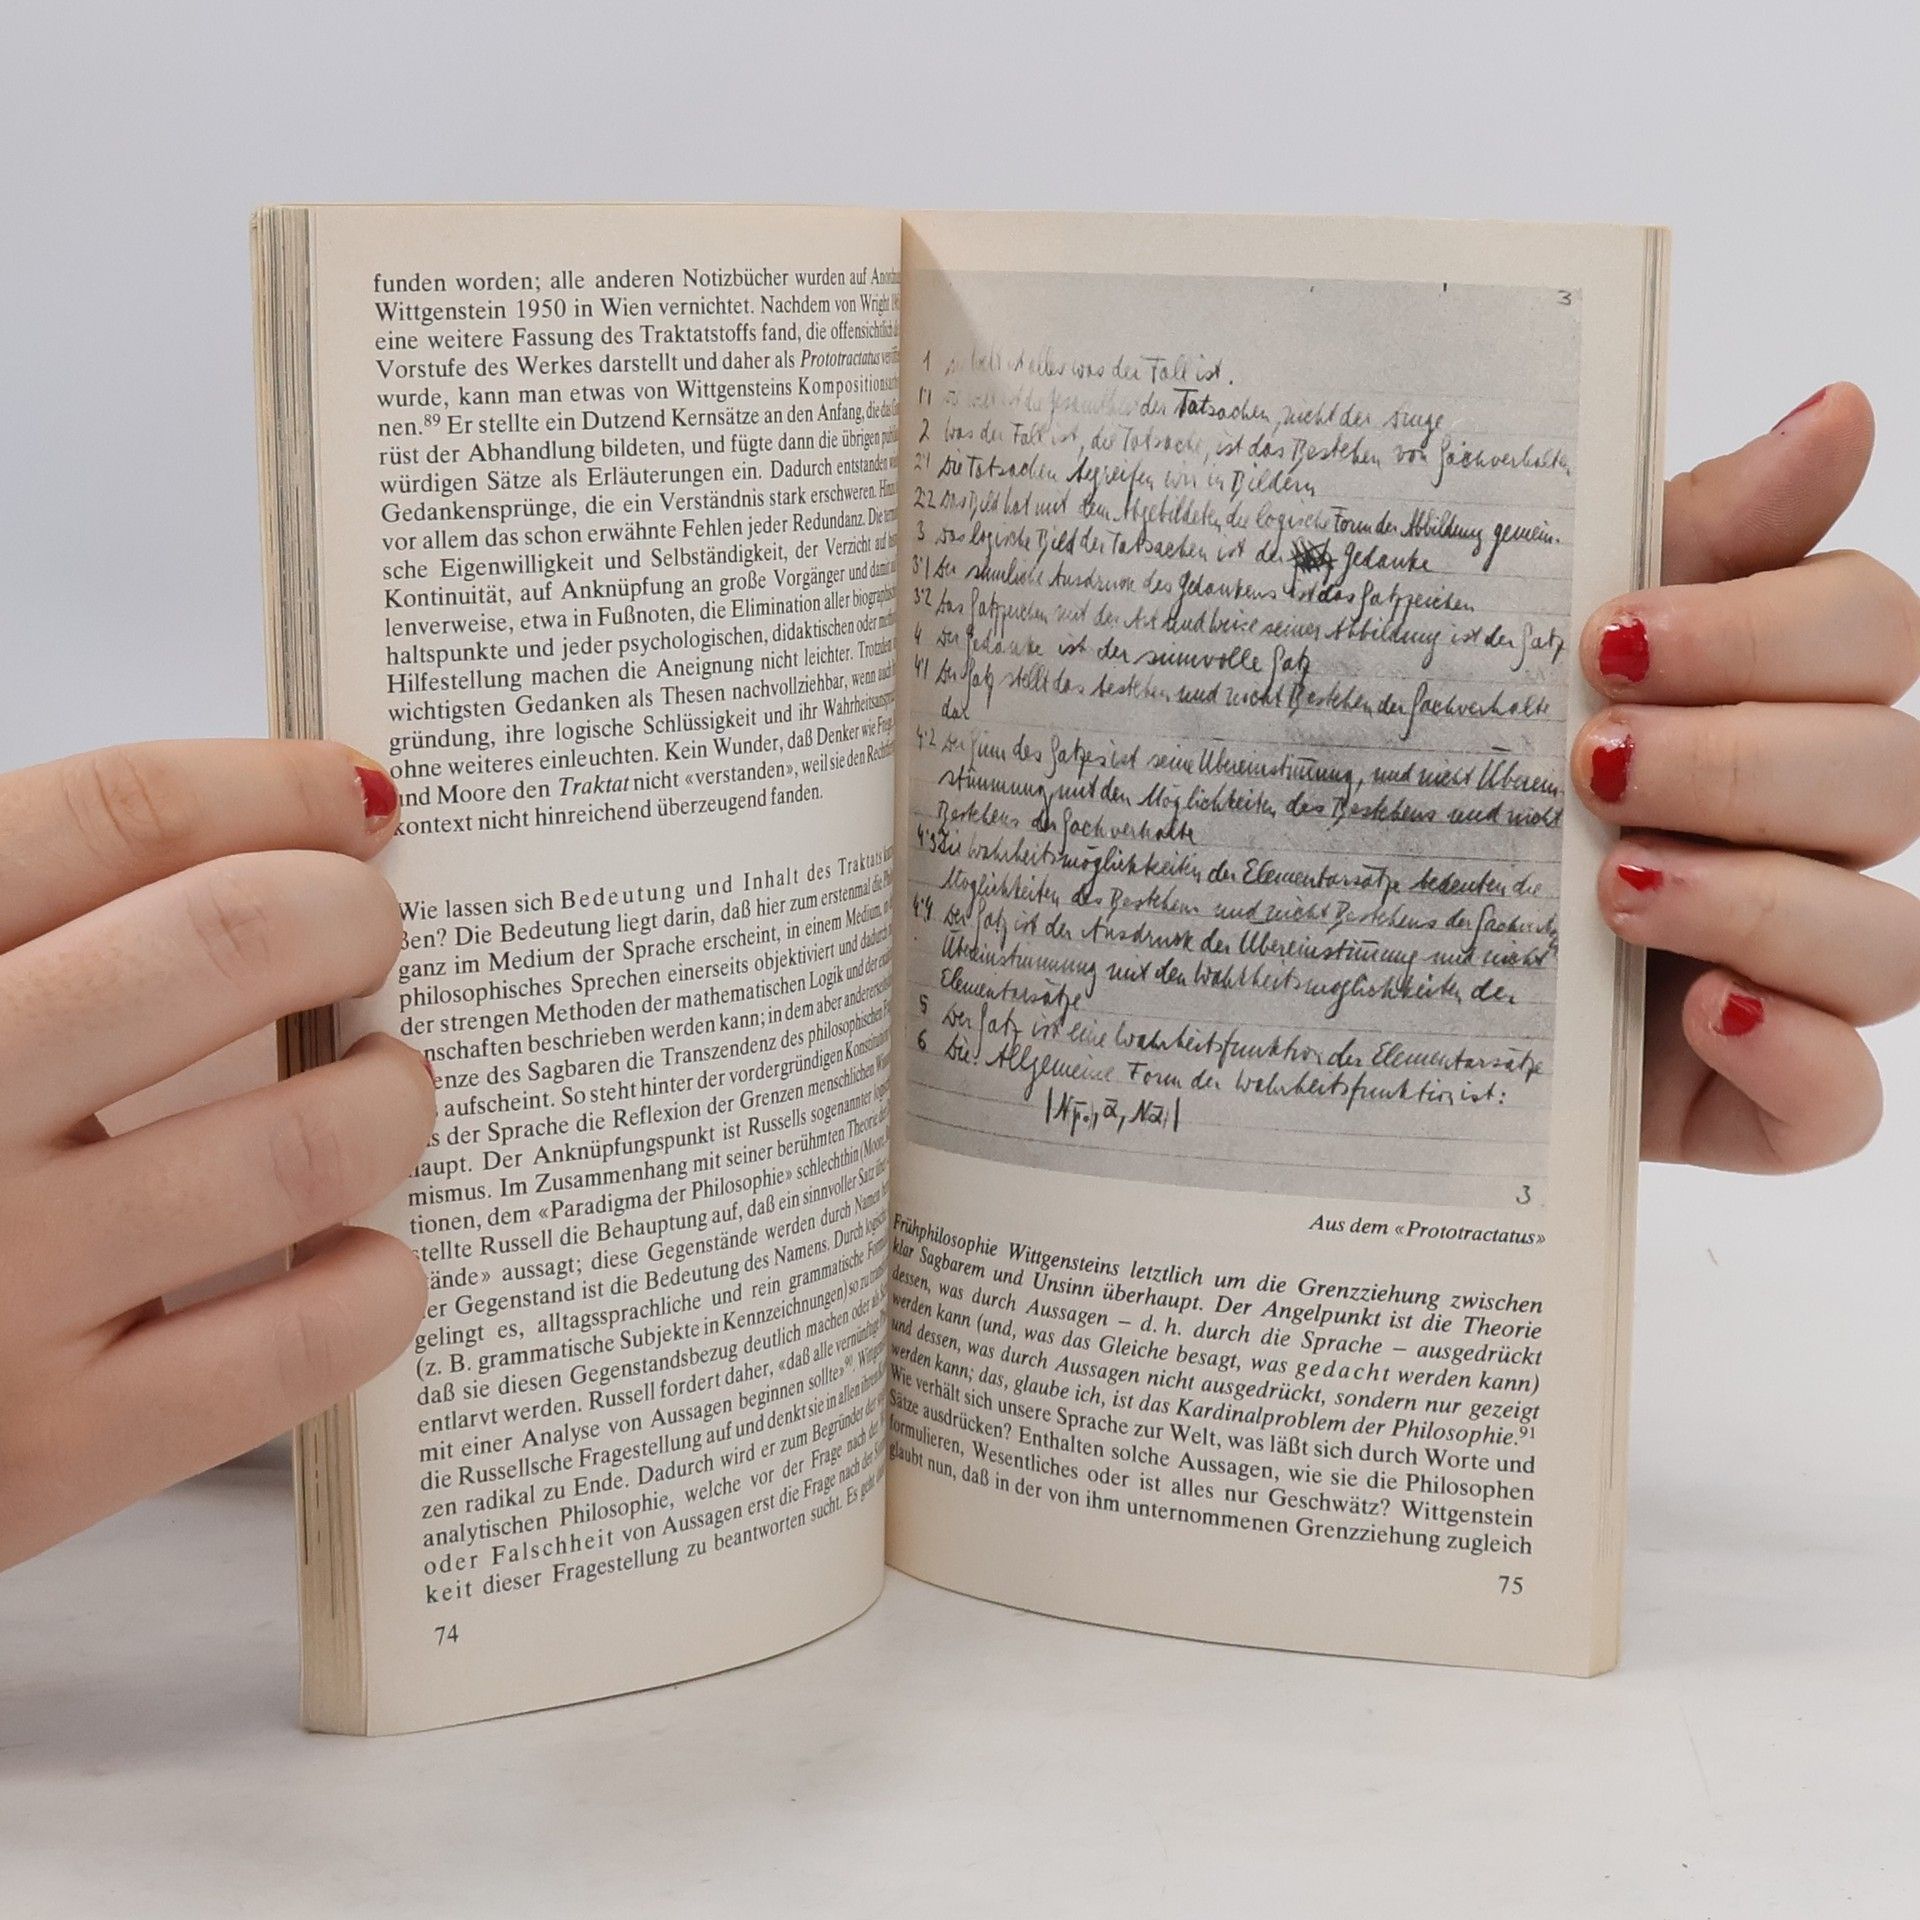 funden worden; alle anderen Notizbücher wurden auf
Wittgenstein 1950 in Wien vernichtet. Nachdem von Wright
eine weitere Fassung des Traktatstoffs fand, die offensichtlich
Vorstufe des Werkes darstellt und daher als Prototractatus
wurde, kann man etwas von Wittgensteins
nen.89 Er stellte ein Dutzend Kernsätze an den Anfang, die das
rüst der Abhandlung bildeten, und fügte dann die übrigen
würdigen Sätze als Erläuterungen ein. Dadurch entstanden
Gedankensprünge, die ein Verständnis stark erschweren.
vor allem das schon erwähnte Fehlen jeder Redundanz. Die
sche Eigenwilligkeit und Selbständigkeit, der Verzicht auf
Kontinuität, auf Anknüpfung an große Vorgänger und
lenverweise, etwa in Fußnoten, die Elimination aller
haltspunkte und jeder psychologischen, didaktischen oder
Hilfestellung machen die Aneignung nicht leichter.
wichtigsten Gedanken als Thesen nachvollziehbar, wenn auch
gründung, ihre logische Schlüssigkeit und ihr
ohne weiteres einleuchten. Kein Wunder, daß Denker wie
und Moore den Traktat nicht «verstanden», weil sie den
kontext nicht hinreichend überzeugend fanden.
Wie lassen sich Bedeutung und Inhalt des Traktats
ßen? Die Bedeutung liegt darin, daß hier zum erstenmal die
ganz im Medium der Sprache erscheint, in einem Medium,
philosophisches Sprechen einerseits objektiviert und
der strengen Methoden der mathematischen Logik und der
nschaften beschrieben werden kann; in dem aber andererseits
enze des Sagbaren die Transzendenz des philosophischen
aufscheint. So steht hinter der vordergründigen
der Sprache die Reflexion der Grenzen menschlichen
haupt. Der Anknüpfungspunkt ist Russells sogenannter
mismus. Im Zusammenhang mit seiner berühmten Theorie
tionen, dem «Paradigma der Philosophie» schlechthin
stellte Russell die Behauptung auf, daß ein sinnvoller Satz
tände» aussagt; diese Gegenstände werden durch Namen
der Gegenstand ist die Bedeutung des Namens. Durch
gelingt es, alltagssprachliche und rein grammatische
(z. B. grammatische Subjekte in Kennzeichnungen) so zu
daß sie diesen Gegenstandsbezug deutlich machen oder als
entlarvt werden. Russell fordert daher, «daß alle vernünftige
mit einer Analyse von Aussagen beginnen sollte».90
die Russellsche Fragestellung auf und denkt sie in allen ihren
zen radikal zu Ende. Dadurch wird er zum Begründer der
analytischen Philosophie, welche vor der Frage nach der
oder Falschheit von Aussagen erst die Frage nach der
keit dieser Fragestellung zu beantworten sucht. Es geht
74
3
1 alles was der Fall ist.
1'1 der Tatsachen, nicht der Dinge
2 Was der Fall ist, die Tatsache, ist das Bestehen von Sachverhalten
2'1 Die Tatsachen begreifen wir in Bildern
2'2 Das Bild hat mit dem Abgebildeten die logische Form der Abbildung gemein.
3 Das logische Bild der Tatsachen ist der Gedanke
3'1 Der sinnliche Ausdruck des Gedankens ist das Satzzeichen
3'2 Das Satzzeichen mit der Art und Weise seiner Abbildung ist der Satz
4 Der Gedanke ist der sinnvolle Satz
4'1 Der Satz stellt das bestehen und nicht Bestehen der Sachverhalte
dar
4'2 Der Sinn des Satzes ist seine Übereinstimmung, und nicht Überein-
stimmung, mit den Möglichkeiten des Bestehens und nicht
Bestehens der Sachverhalte
4'3 Die Wahrheitsmöglichkeiten der Elementarsätze bedeuten die
Möglichkeiten des Bestehens und nicht Bestehens der
4'4 Der Satz ist der Ausdruck der Übereinstimmung und nicht
Übereinstimmung mit den Wahrheitsmöglichkeiten der
Elementarsätze
5 Der Satz ist eine Wahrheitsfunktion der Elementarsätze
6 Die Allgemeine Form der Wahrheitsfunktion ist:
3
Aus dem «Prototractatus»
Frühphilosophie Wittgensteins letztlich um die Grenzziehung zwischen
klar Sagbarem und Unsinn überhaupt. Der Angelpunkt ist die Theorie
dessen, was durch Aussagen – d. h. durch die Sprache – ausgedrückt
werden kann (und, was das Gleiche besagt, was gedacht werden kann)
und dessen, was durch Aussagen nicht ausgedrückt, sondern nur gezeigt
werden kann; das, glaube ich, ist das Kardinalproblem der Philosophie.91
Wie verhält sich unsere Sprache zur Welt, was läßt sich durch Worte und
Sätze ausdrücken? Enthalten solche Aussagen, wie sie die Philosophen
formulieren, Wesentliches oder ist alles nur Geschwätz? Wittgenstein
glaubt nun, daß in der von ihm unternommenen Grenzziehung zugleich
75